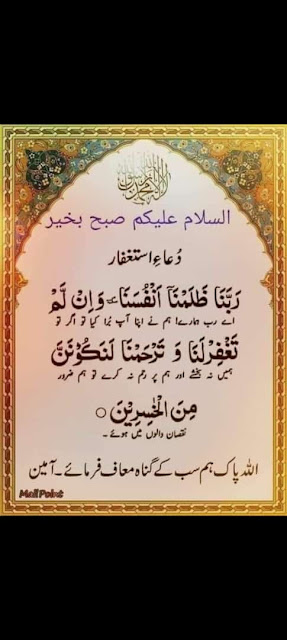 لا إله إلا الله محمد رسول الله
السلام علیکم صبح بخیر
دُعاءِ استغفار
رَبَّنَا ظَلَمْنَآ اَنْفُسَنَا ٚ وَاِنْ لَّمْ
اے رب ہمارے! ہم نے اپنا آپ بُرا کیا تو اگر تو
تَغْفِرْلَنَا وَ تَرْحَمْنَا لَنَكُوْنَنَّ
ہمیں نہ بخشے اور ہم پر رحم نہ کرے تو ہم ضرور
مِنَ الْخٰسِرِيْنَ ○
نقصان والوں میں ہوئے۔
اللہ پاک ہم سب کے گناہ معاف فرمائے۔ آمین
Mail Point